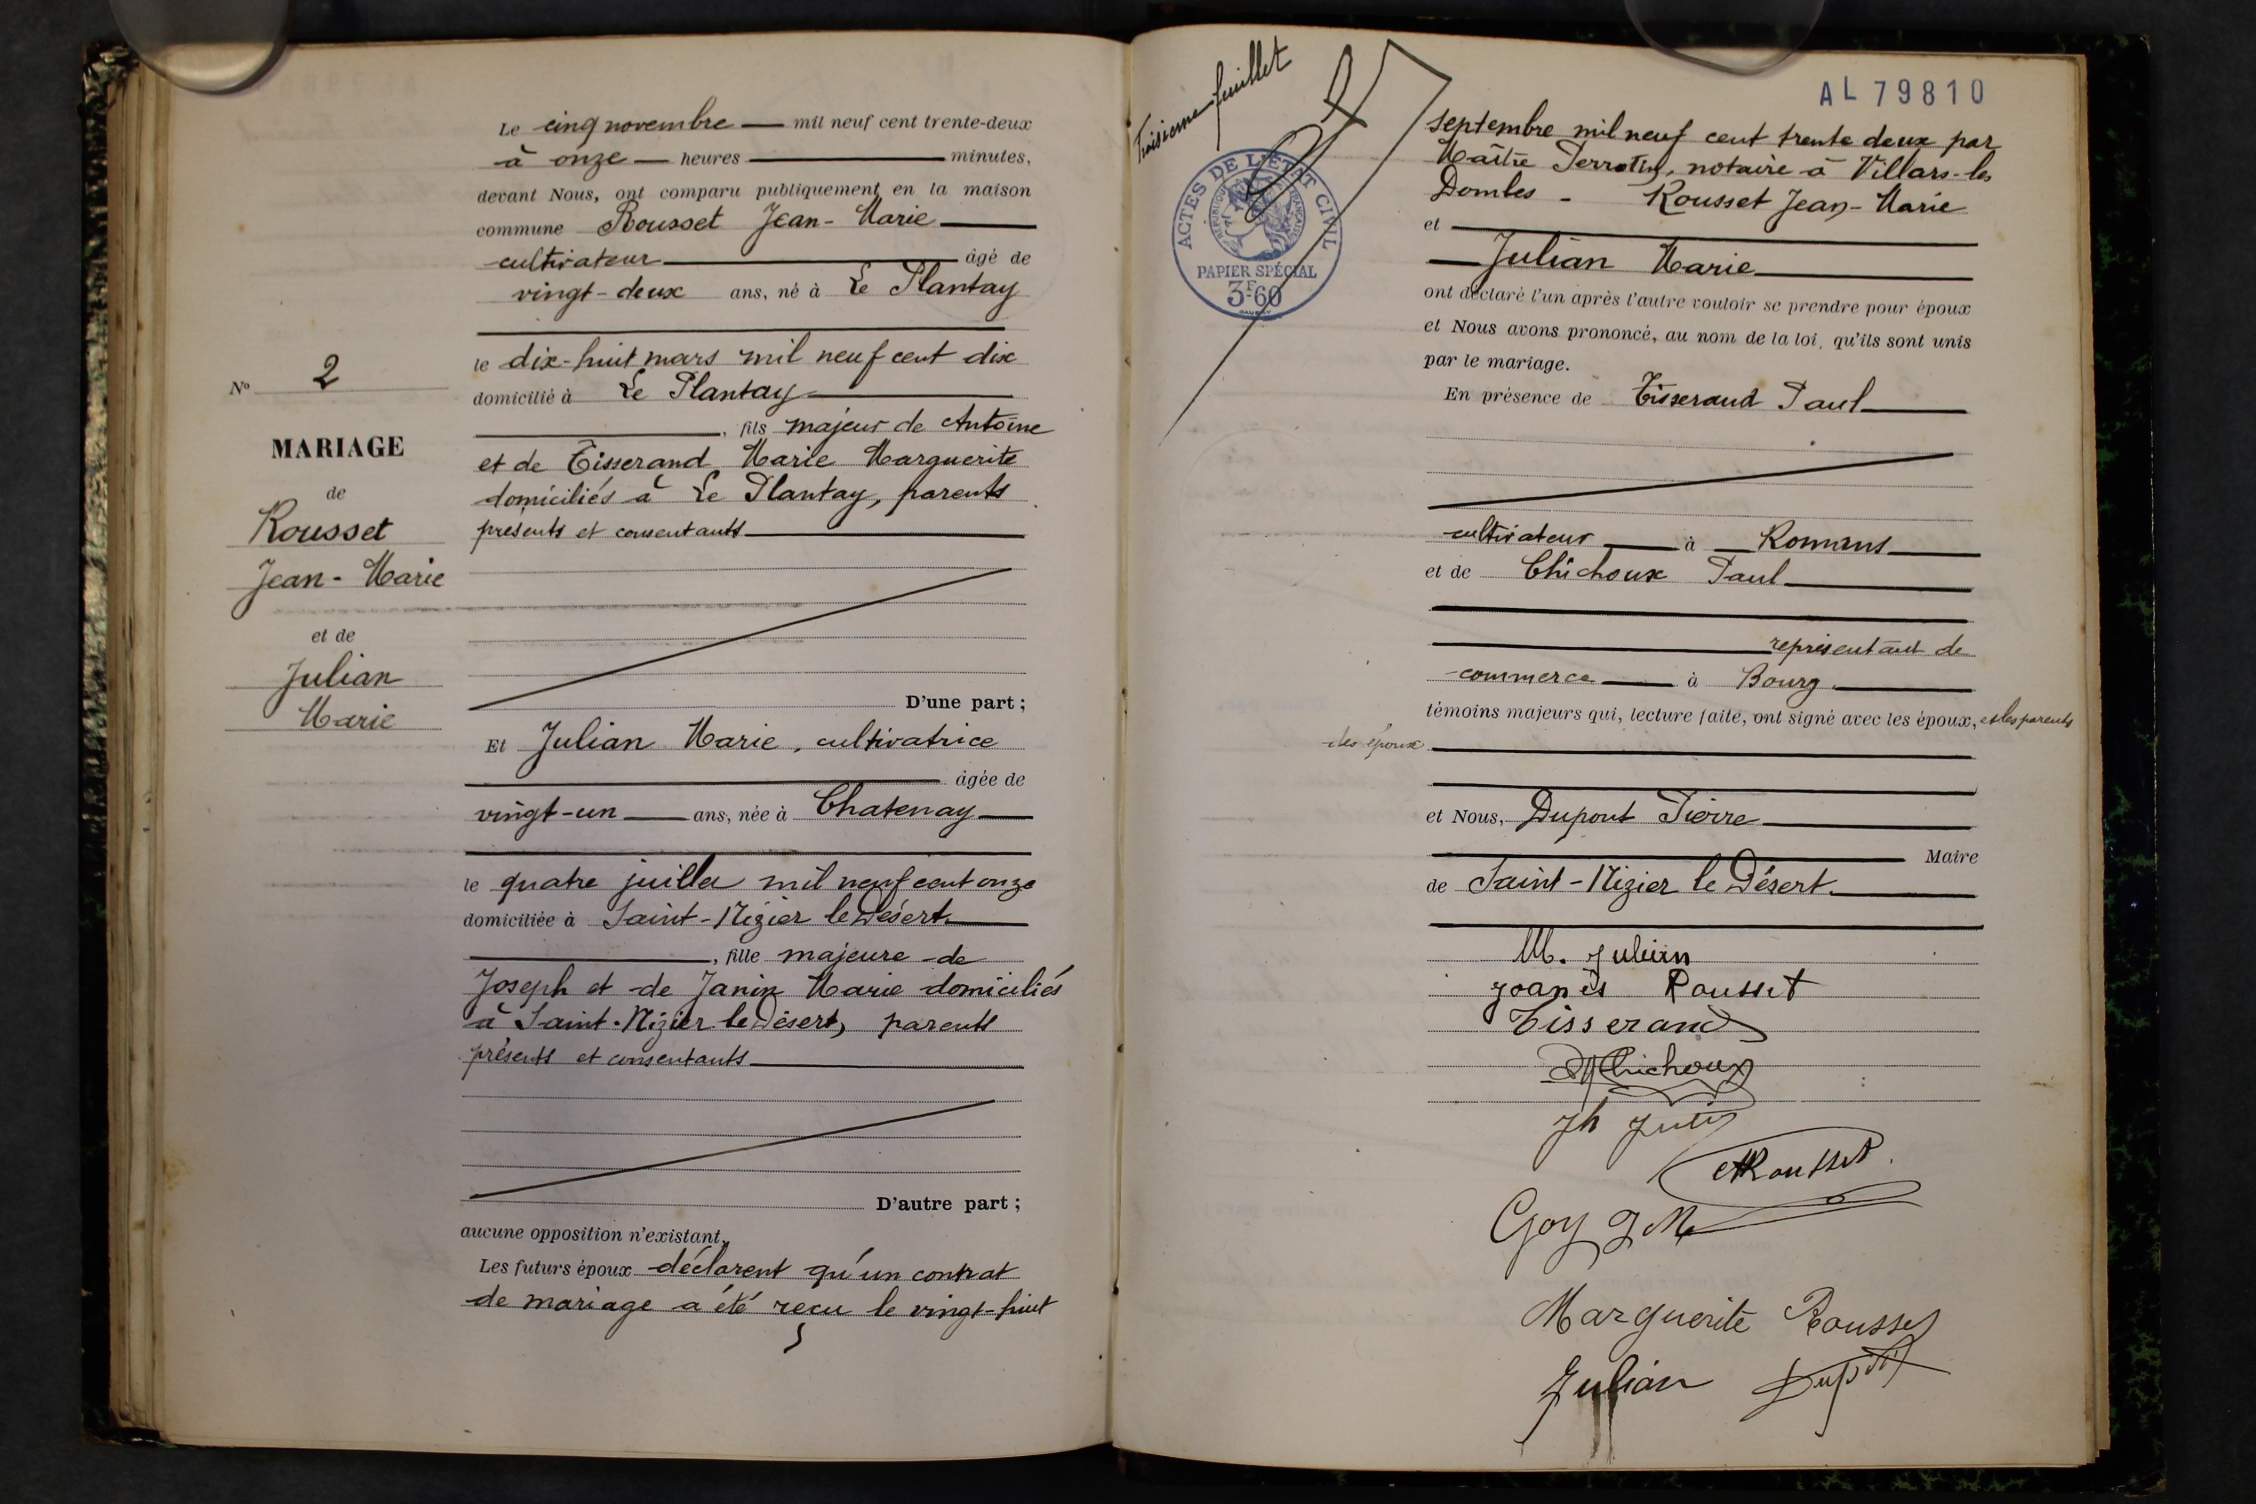 Le cinq novembre mil neuf cent trente-deux
à onze heures minutes,
devant Nous, ont comparu publiquement en la maison
commune Rousset Jean-Marie
cultivateur âgé de
vingt-deux ans, né à Le Plantay
le dix-huit mars mil neuf cent dix
domicilié à Le Plantay
, fils majeur de Antoine
et de Tisserand Marie Marguerite
domiciliés à Le Plantay, parents
présents et consentants
D'une part ;
Et Julian Marie, cultivatrice
âgée de
vingt-un ans, née à Chatenay
le quatre juillet mil neuf cent onze
domiciliée à Saint-Nizier le Désert
, fille majeure de
Joseph et de Janin Marie domiciliés
à Saint-Nizier le Désert, parents
présents et consentants
D'autre part ;
aucune opposition n'existant,
Les futurs époux déclarent qu'un contrat
de mariage a été reçu le vingt-huit
N° 2
MARIAGE
de
Rousset
Jean-Marie
et de
Julian
Marie
Troisième feuillet
ACTES DE L'ÉTAT CIVIL
RÉPUBLIQUE FRANÇAISE
PAPIER SPÉCIAL
3F60
AL 79810
septembre mil neuf cent trente deux par
Maître Perrotin, notaire à Villars-les
Dombes - Rousset Jean-Marie
et
Julian Marie
ont déclaré l'un après l'autre vouloir se prendre pour époux
et Nous avons prononcé, au nom de la loi, qu'ils sont unis
par le mariage.
En présence de Tisserand Paul
cultivateur à Romans
et de Chichoux Paul
représentant de
commerce à Bourg
témoins majeurs qui, lecture faite, ont signé avec les époux, et les parents
des époux
et Nous, Dupont Pierre
Maire
de Saint-Nizier le Désert
M. Julian
Joanès Rousset
Tisserand
Chichoux
Jh
Rousset
Goy J M
Marguerite Rousset
Julian Dupont